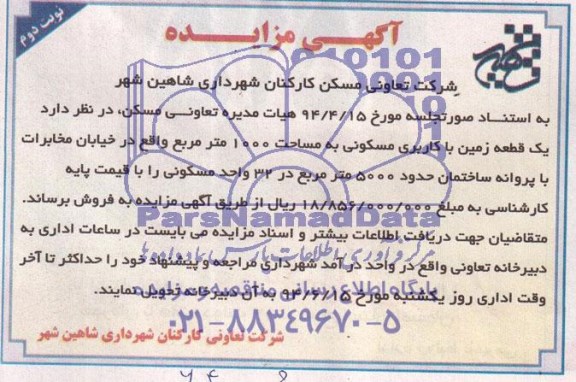 نوبت دوم
آگهی مزایده
شرکت تعاونی مسکن کارکنان شهرداری شاهین شهر
به استناد صورتجلسه مورخ ۹۴/۴/۱۵ هیات مدیره تعاونی مسکن، در نظر دارد
یک قطعه زمین با کاربری مسکونی به مساحت ۱۰۰۰ متر مربع واقع در خیابان مخابرات
با پروانه ساختمان حدود ۵۰۰۰ متر مربع در ۳۲ واحد مسکونی را با قیمت پایه
کارشناسی به مبلغ ۱۸/۸۵۶/۰۰۰/۰۰۰ ریال از طریق آگهی مزایده به فروش برساند.
ParsNamadData
متقاضیان جهت دریافت اطلاعات بیشتر و اسناد مزایده می بایست در ساعات اداری به
دبیرخانه تعاونی واقع در واحد درآمد شهرداری مراجعه و پیشنهاد خود را حداکثر تا آخر
وقت اداری روز یکشنبه مورخ ۹۴/۶/۱۵ به آن دبیرخانه تحویل نمایند.
۰۲۱-۸۸۳۴۹۶۷۰-۵
شرکت تعاونی کارکنان شهرداری شاهین شهر